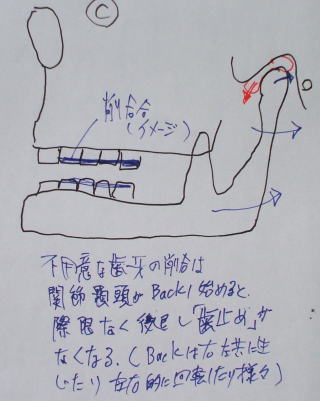 C
削合
(イメージ)
不用意な歯牙の削合は
関節顎頭がBackし始めると
際限なく後退し「歯止め」が
なくなる。(Backは右左共に生
じたり 左右的に回転したり様々)